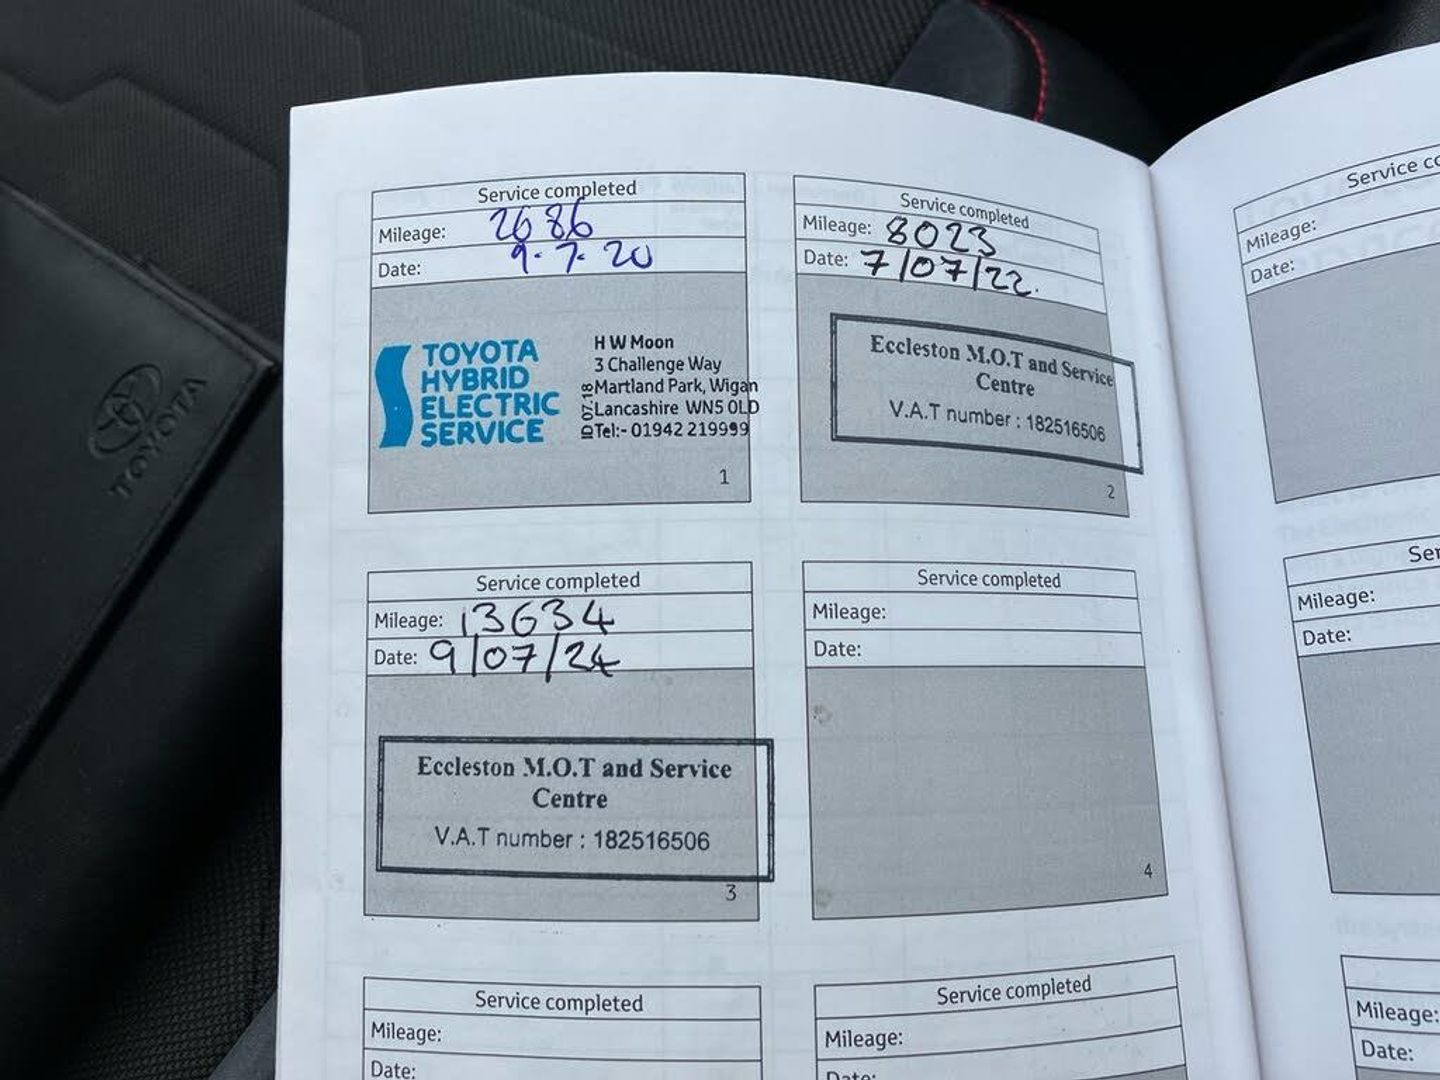 Service completed
Mileage: 2686
Date: 9.7.20
TOYOTA
HYBRID
ELECTRIC
SERVICE
ID 07.18
H W Moon
3 Challenge Way
Martland Park, Wigan
Lancashire WN5 0LD
Tel:- 01942 219999
1
Service completed
Mileage: 8023
Date: 7/07/22.
Eccleston M.O.T and Service
Centre
V.A.T number : 182516506
2
Service completed
Mileage: 13634
Date: 9/07/24
Eccleston M.O.T and Service
Centre
V.A.T number : 182516506
3
Service completed
Mileage:
Date:
4
Service completed
Mileage:
Date:
Service completed
Mileage:
Date:
Service co
Mileage:
Date:
Ser
Mileage:
Date:
Mileage:
Date:
TOYOTA